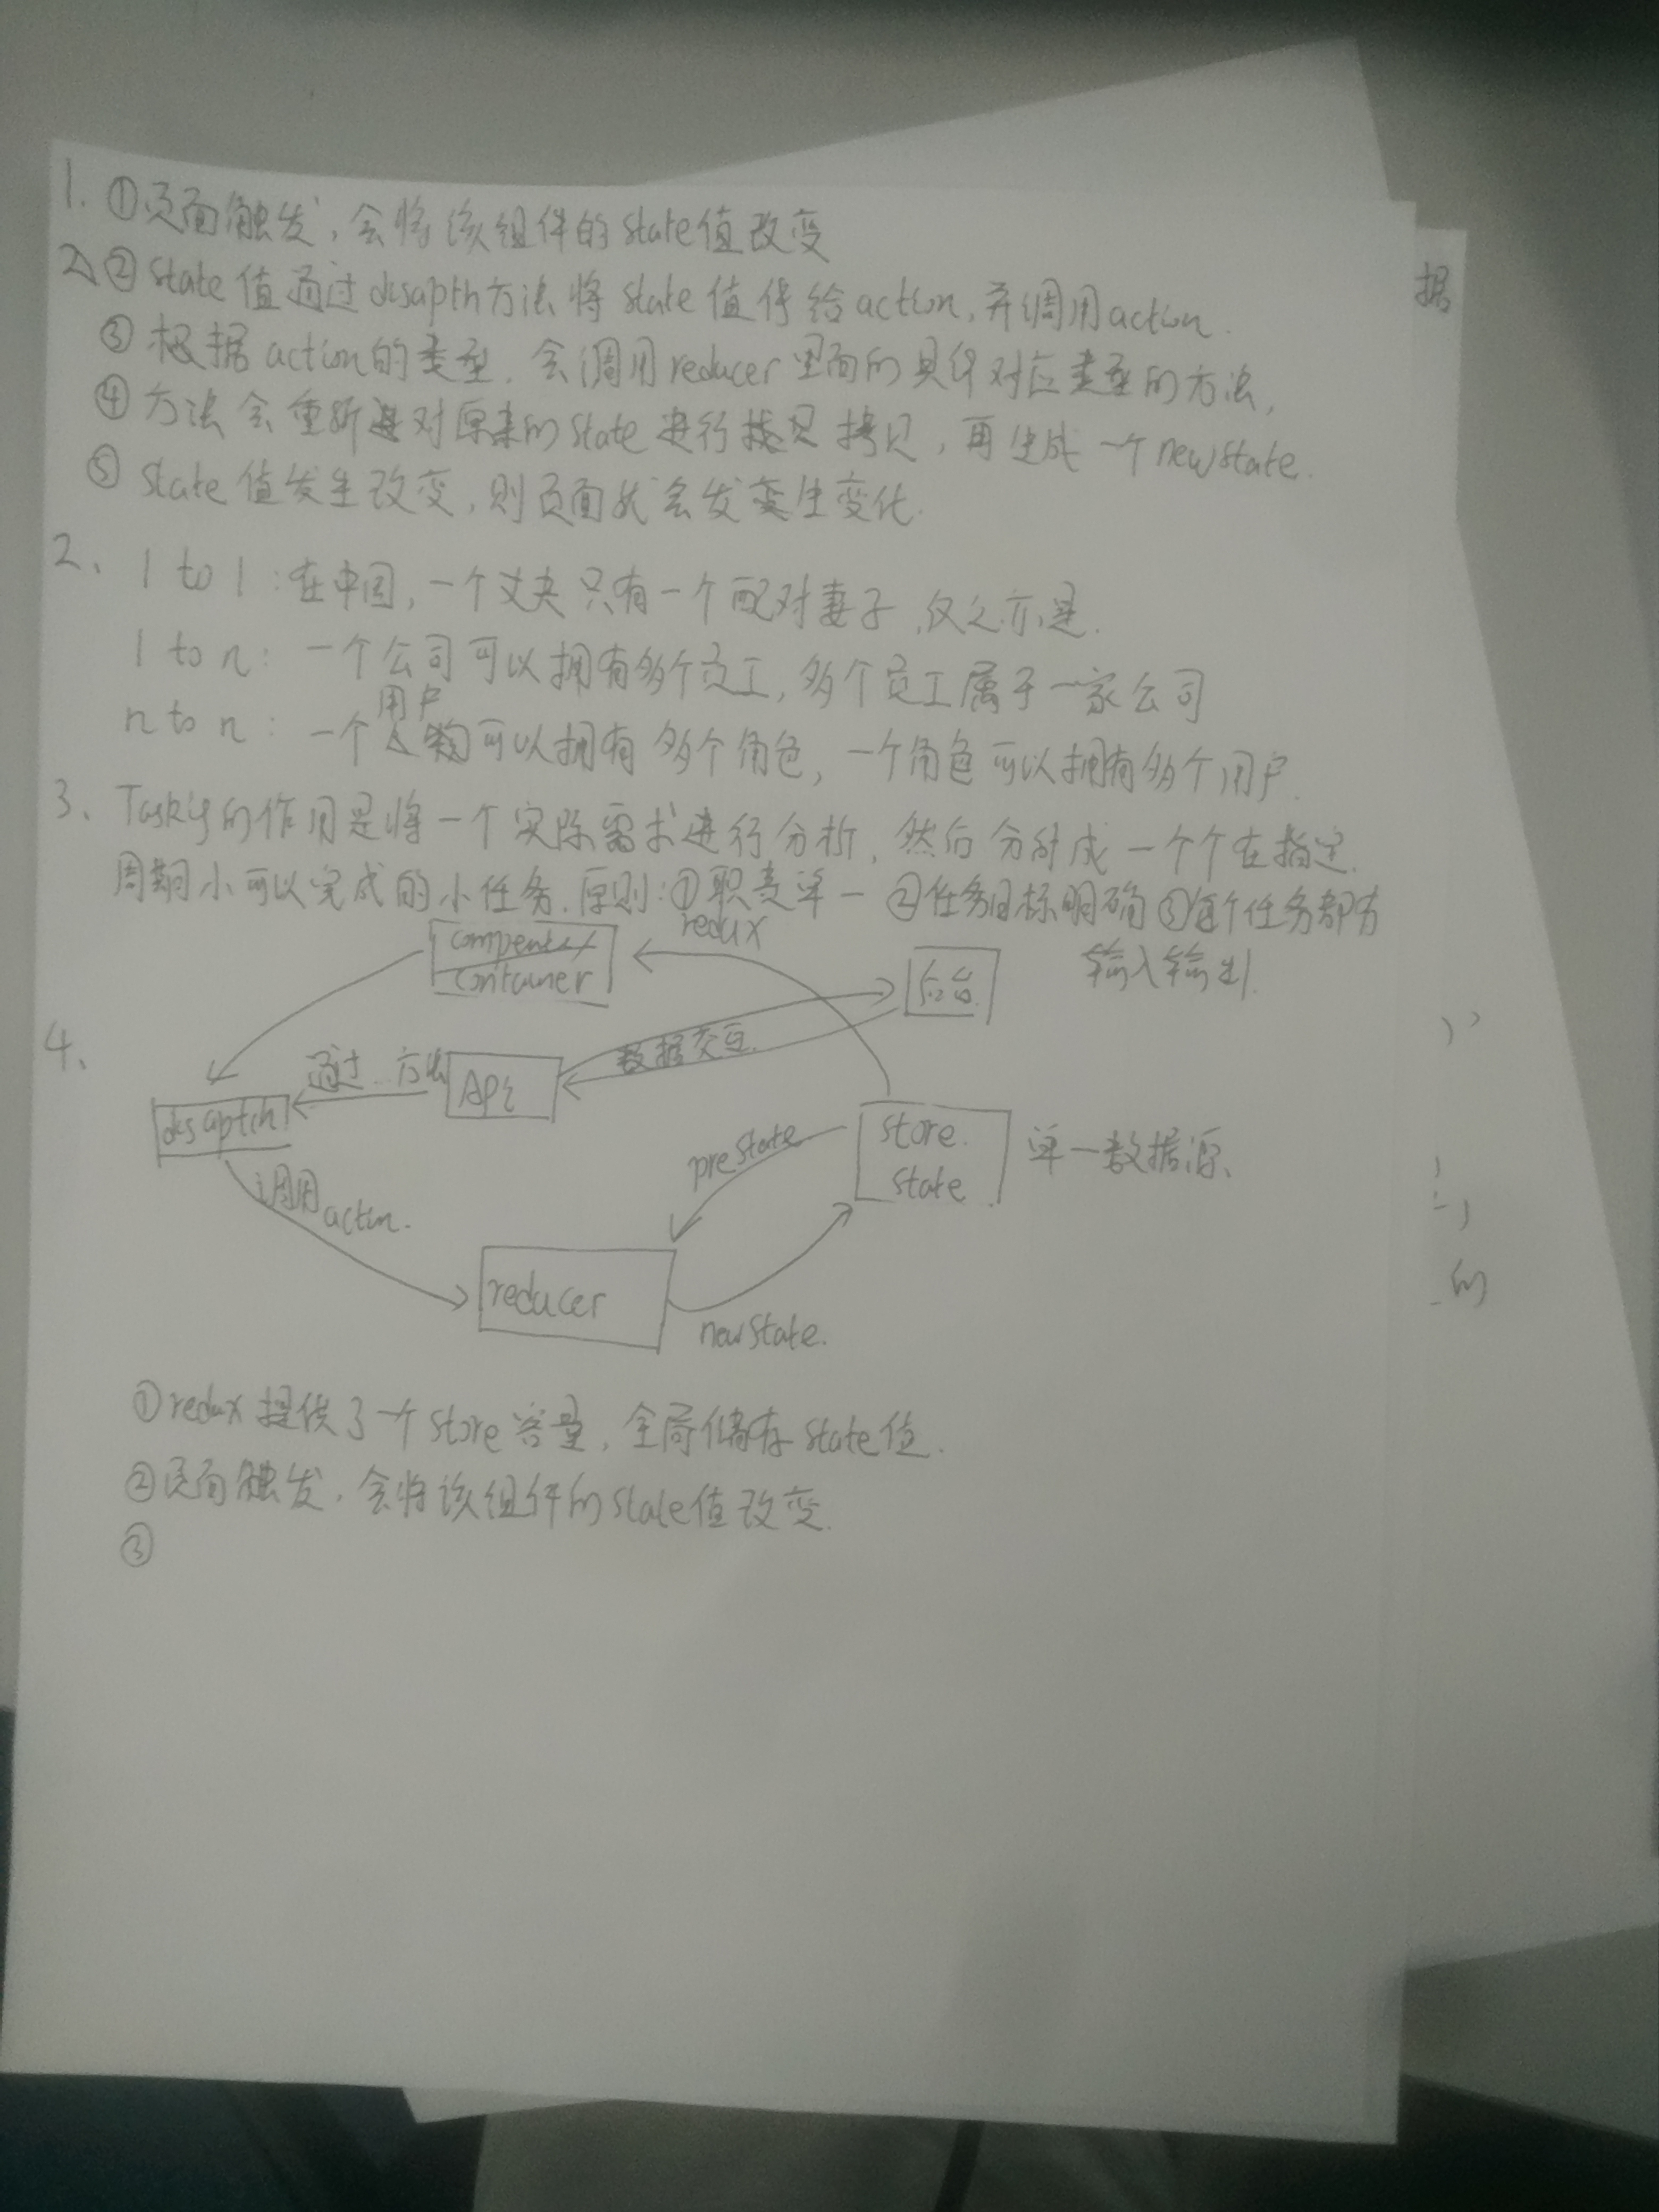 1. ①页面触发，会将该组件的state值改变
②state值通过disapth方法将state值传给action，并调用action.
③根据action的类型，会调用reducer里面的具体对应类型的方法，
④方法会重新对原来的state进行拷贝，再生成一个newstate.
⑤state值发生改变，则页面就会发生变化.
2、1 to 1：在中国，一个丈夫只有一个配对妻子，反之亦是.
1 to n：一个公司可以拥有多个员工，多个员工属于一家公司
n to n：一个用户可以拥有多个角色，一个角色可以拥有多个用户.
3、的作用是将一个实际需求进行分析，然后分解成一个个在指定
周期小可以完成的小任务.原则：①职责单一 ②任务目标明确 ③每个任务都有
输入输出.
redux
container
后台
4、
数据交互
通过 方法
API
disaptch
store.
state
单一数据源、
prestate
调用action.
reducer
newstate.
①redux提供了一个store容量，全局储存state值.
②页面触发，会将该组件的state值改变.
③
据
的